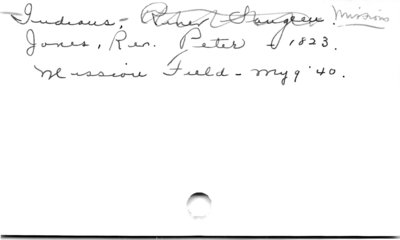 Indians, - River Saugeen. Missions
Jones, Rev. Peter - 1823.
Mission Field - My 9 '40.